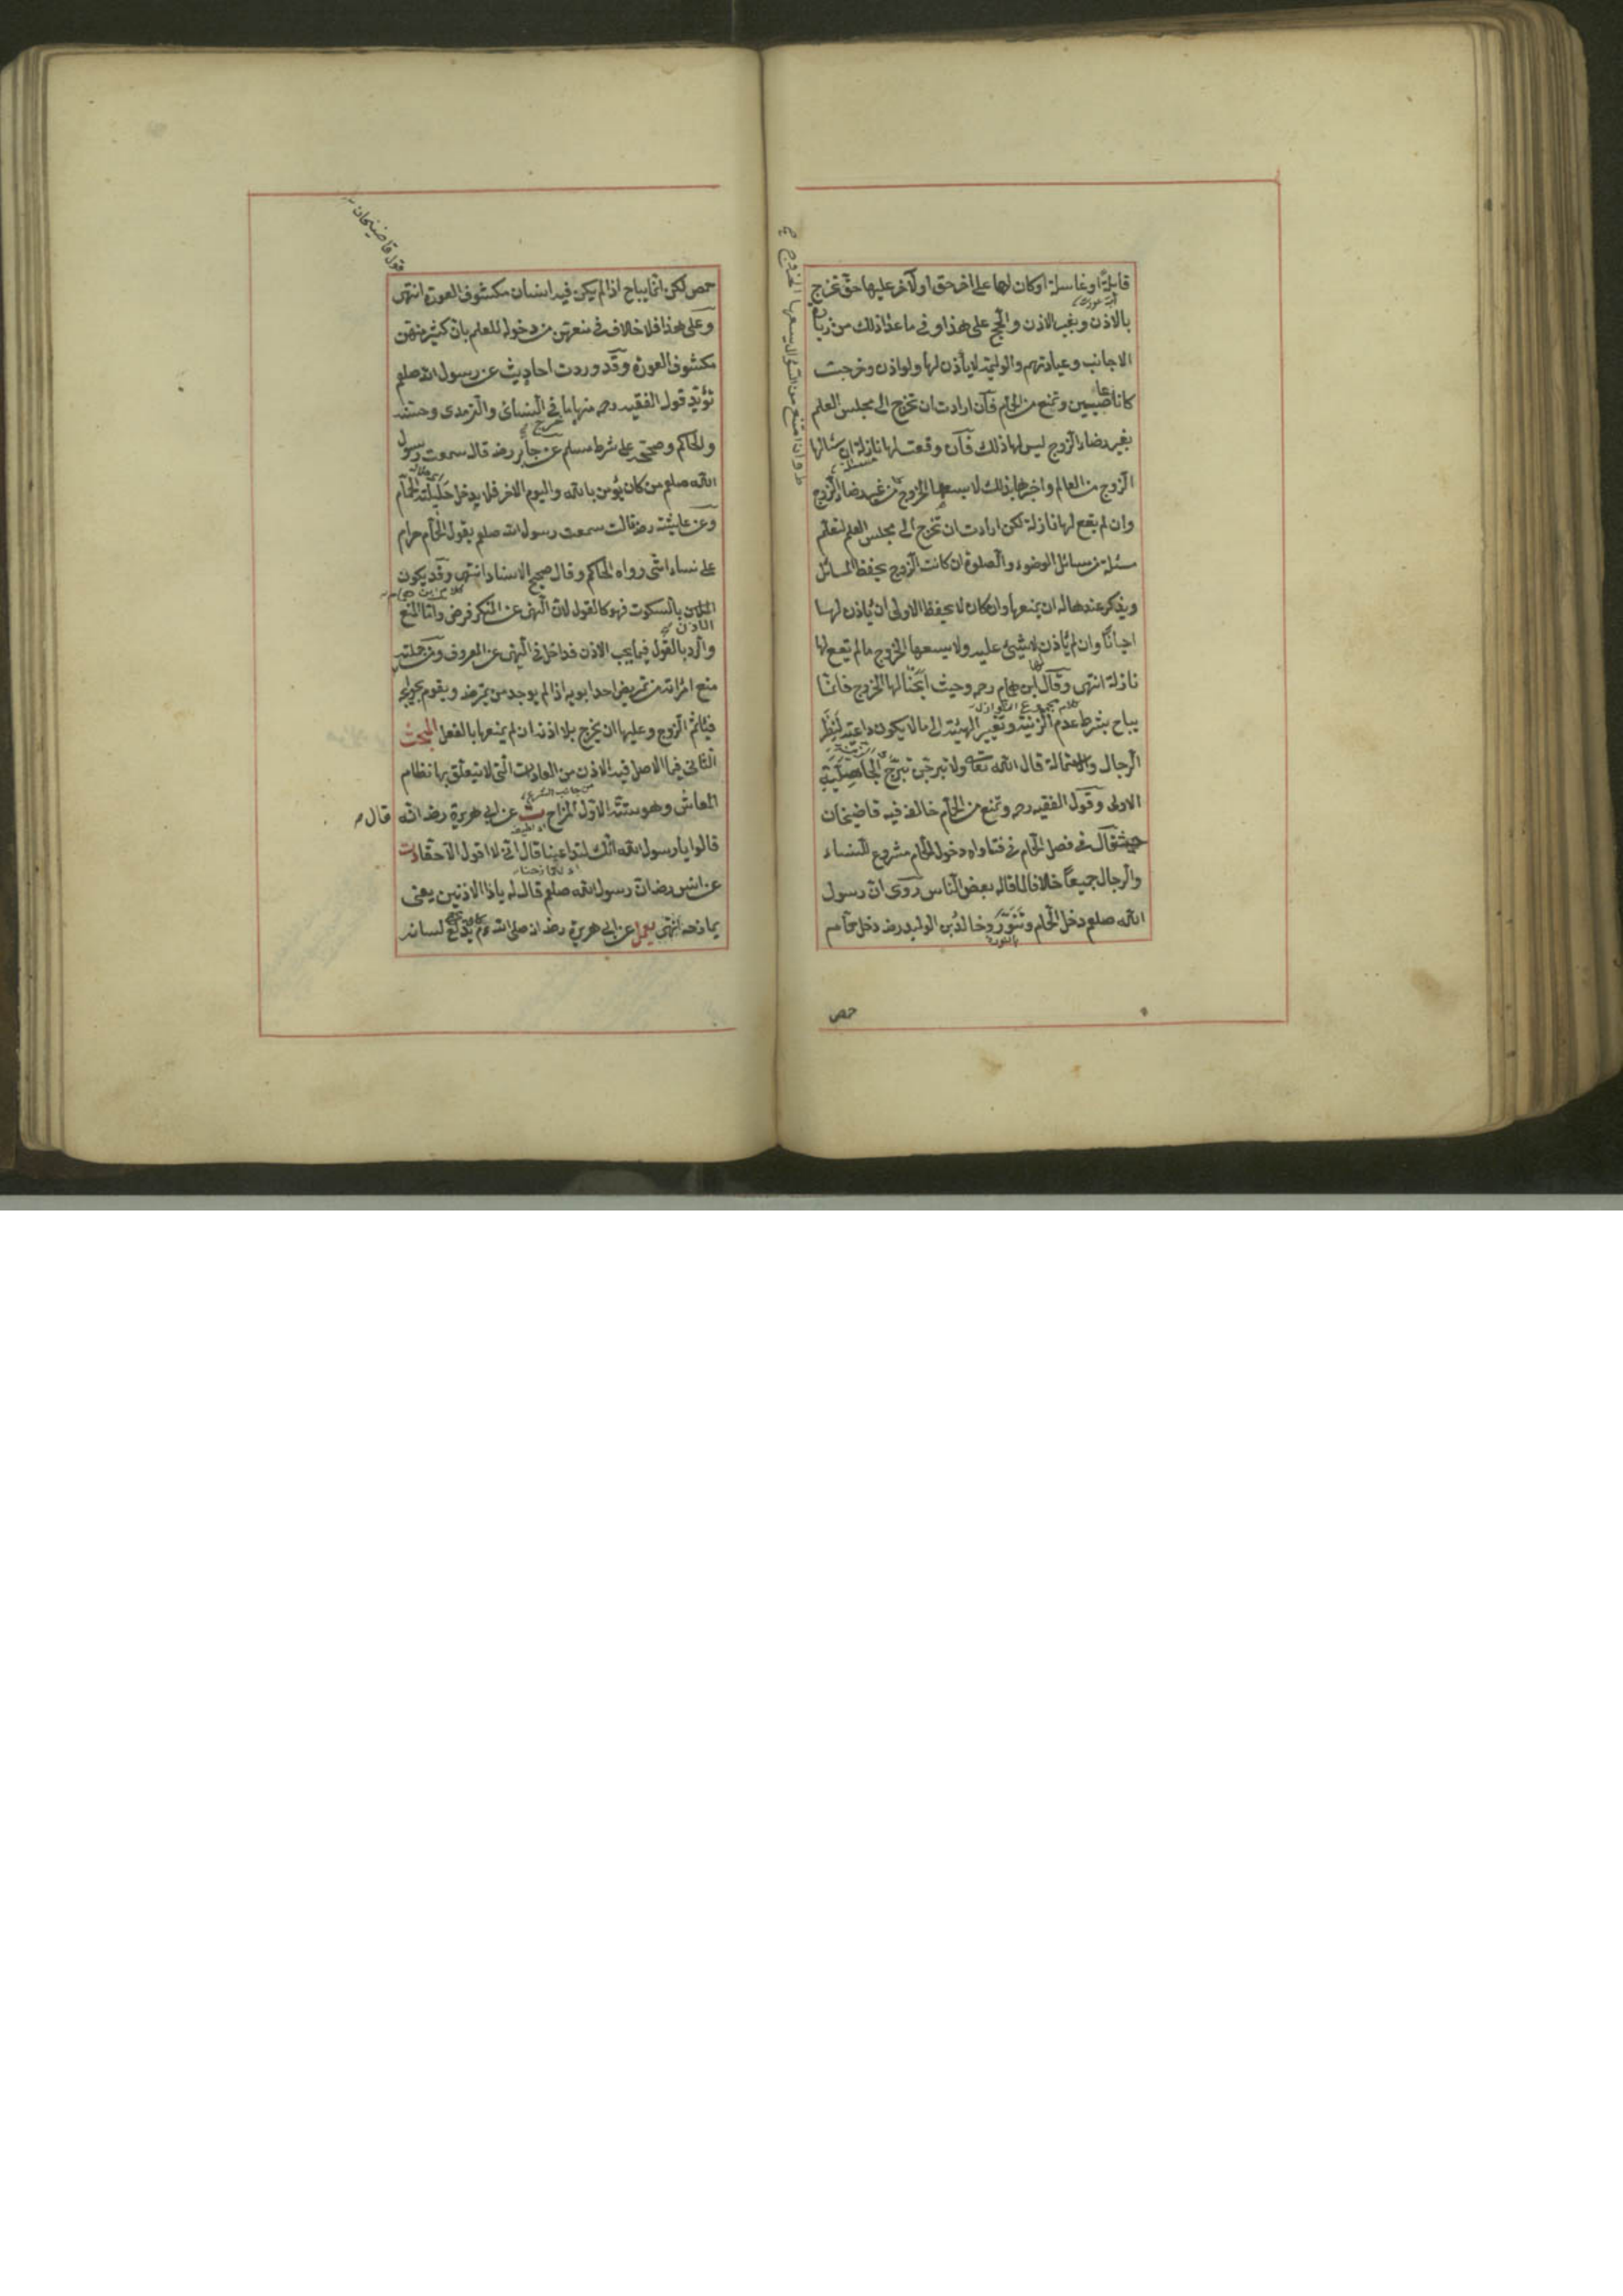 قابلة او غاسلة او كان لها على اخر حق او لآخر عليها حق تخرج
بالاذن وبغير الاذن والحج على هذا وفي ما عدا ذلك من زيارة
الاجانب وعيادتهم والوليمة لا يأذن لها ولو اذن وخرجت
كانا عاصيين وتمنع من الحمام فان ارادت ان تخرج الى مجلس العلم
بغير رضاء الزوج ليس لها ذلك فان وقعت لها نازلة ان سئال لها
الزوج من العالم واخبرها بذلك لا يسعها الخروج من غير رضاء الزوج
وان لم يقع لها نازلة لكن ارادت ان تخرج الى مجلس العلم لتعلم
مسئلة من مسائل الوضوء والصلوة ان كانت الزوج يحفظ المسائل
ويذكر عندها له ان يمنعها وان كان لا يحفظ الاولى ان يأذن لها
احيانًا وان لم يأذن لا شيئ عليه ولا يسعها الخروج ما لم يقع لها
نازلة انتهى وقال ابن همام رحه وحيث ابحنا لها الخروج فانما
يباح بشرط عدم الزينة وتغيير الهيئة الى ما لا يكون داعية لنظر
الرجال والاستمالة قال الله تعالى ولا تبرجن تبرج الجاهلية
الاولى وقول الفقيه رحه وتمنع من الحمام خالفه فيه قاضيخان
حيث قال في فصل الحمام في فتاواه دخول الحمام مشروع للنساء
والرجال جميعًا خلافا لما قاله بعض الناس روى ان رسول
الله صلعم دخل الحمام وتنور وخالد بن الوليد رضه دخل حمام
حمص
وان امتنع من السؤال يسعها الخروج
قول قاضيخان
حمص لكن انما يباح اذا لم يكن فيه انسان مكشوف العورة انتهى
وعلى هذا فلا خلاف في منعهن من دخوله للعلم بان كثير منهن
مكشوف العورة وقد وردت احاديث عن رسول الله صلعم
تؤيد قول الفقيه رحه منها ما في النسائي والترمذي وحسنه
والحاكم وصححه على شرط مسلم عن جابر رضه قال سمعت رسول
الله صلعم من كان يؤمن بالله واليوم الاخر فلا يدخل حليلته الحمام
وعن عايشة رضه قالت سمعت رسول الله صلعم يقول الحمام حرام
على نساء امتى رواه الحاكم وقال صحيح الاسناد انتهى وقد يكون
الاذن بالسكوت فهو كالقول لان النهى عن المنكر فرض واما المنع
والرد بالقول فيما يجب الاذن فداخل في النهى عن المعروف ومن جملته
منع امرأته من تمريض احد ابويه اذا لم يوجد من يمرضه ويقوم بحوائجه
فيأثم الزوج وعليها ان يخرج بلا اذنه ان لم يمنعها بالفعل المبحث
الثاني فيما الاصل فيه الاذن من العادات التى لا يتعلق بها نظام
المعاش وهو ستة الاول المزاح ت عن ابى هريرة رضه الله قال
قالوا يا رسول الله انك لتداعبنا قال انى لا اقول الا حقا دت
عن انس رضه ان رسول الله صلعم قال له يا ذا الاذنين يعنى
يمازحه انتهى يعلى عن ابى هريرة رضه انه صلى الله يدلع لسانه